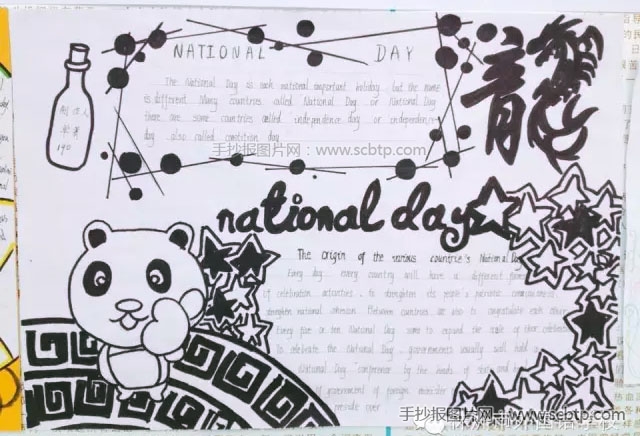 NATIONAL DAY
The National Day is each national important holiday, but the name
is different. Many countries called National Day or National Day
there are some countries called independence day or independence
day also called constition day
制作人
手抄报图片网:www.scbtp.com
龍
national day
The origin of the various countrie's National Day
Every day every country will have a different
of celebration activities, to strengthen its people's patriotic
strengthen national cohesion. Between countries are also to congratulate each other
Every five or ten National Day, some to expand the scale of their celebration
to celebrate the National Day, governments usually will hold a
National Day by the heads of state
of government of foreign minister
preside over
手抄报图片网:www.scbtp.com